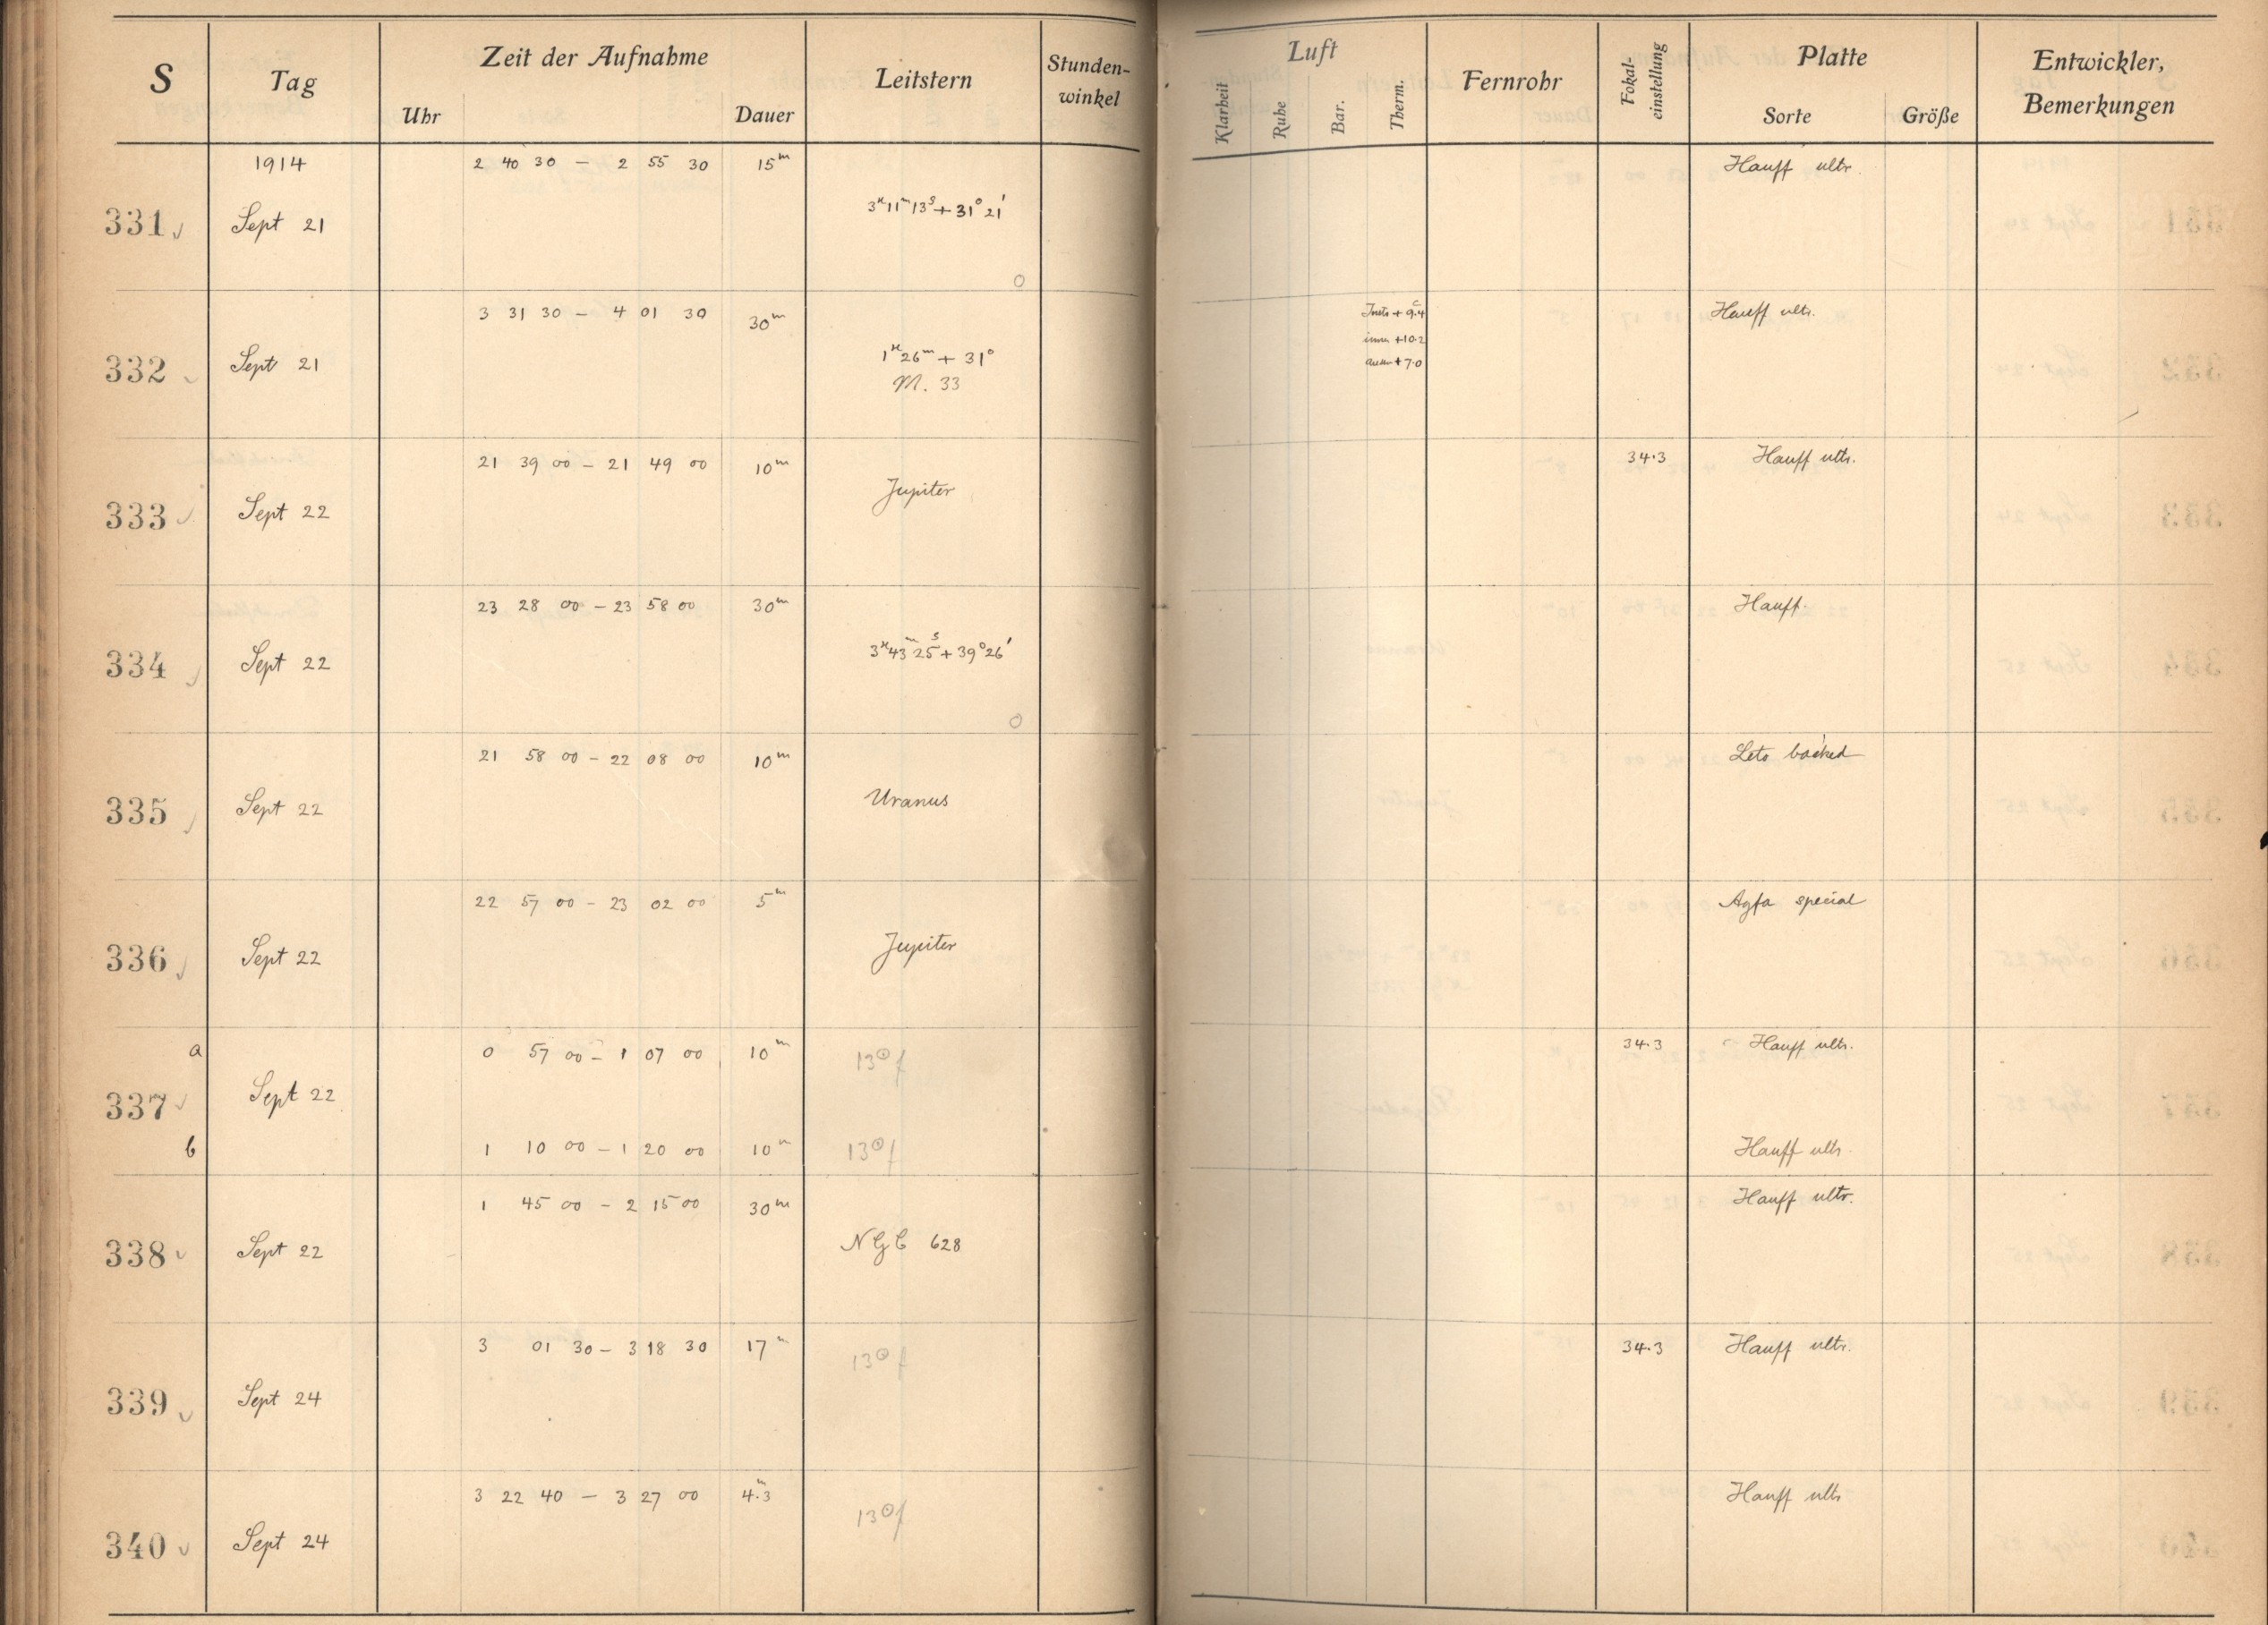 S Tag Zeit der Aufnahme Leitstern Stunden-winkel Luft Fernrohr Fokal-einstellung Platte Entwickler, Bemerkungen
Uhr Dauer Klarheit Ruhe Bar. Therm. Sorte Größe
1914 2 40 30 – 2 55 30 15m Hauff ultr.
331 Sept 21 3h11m13s+31°21'
3 31 30 – 4 01 30 30m +9.4 Hauff ultr.
332 Sept 21 1h26m+31° +10.2
M. 33 +7.0
21 39 00 – 21 49 00 10m 34.3 Hauff ultr.
333 Sept 22 Jupiter
23 28 00 – 23 58 00 30m Hauff
334 Sept 22 3h43m25s+39°26'
21 58 00 – 22 08 00 10m Leto backed
335 Sept 22 Uranus
22 57 00 – 23 02 00 5m Agfa special
336 Sept 22 Jupiter
a 0 57 00 – 1 07 00 10m 13⊙f 34.3 Hauff ultr.
337 Sept 22
b 1 10 00 – 1 20 00 10m 13⊙f Hauff ultr.
1 45 00 – 2 15 00 30m Hauff ultr.
338 Sept 22 NGC 628
3 01 30 – 3 18 30 17m 13⊙f 34.3 Hauff ultr.
339 Sept 24
3 22 40 – 3 27 00 4m.3 13⊙f Hauff ultr
340 Sept 24